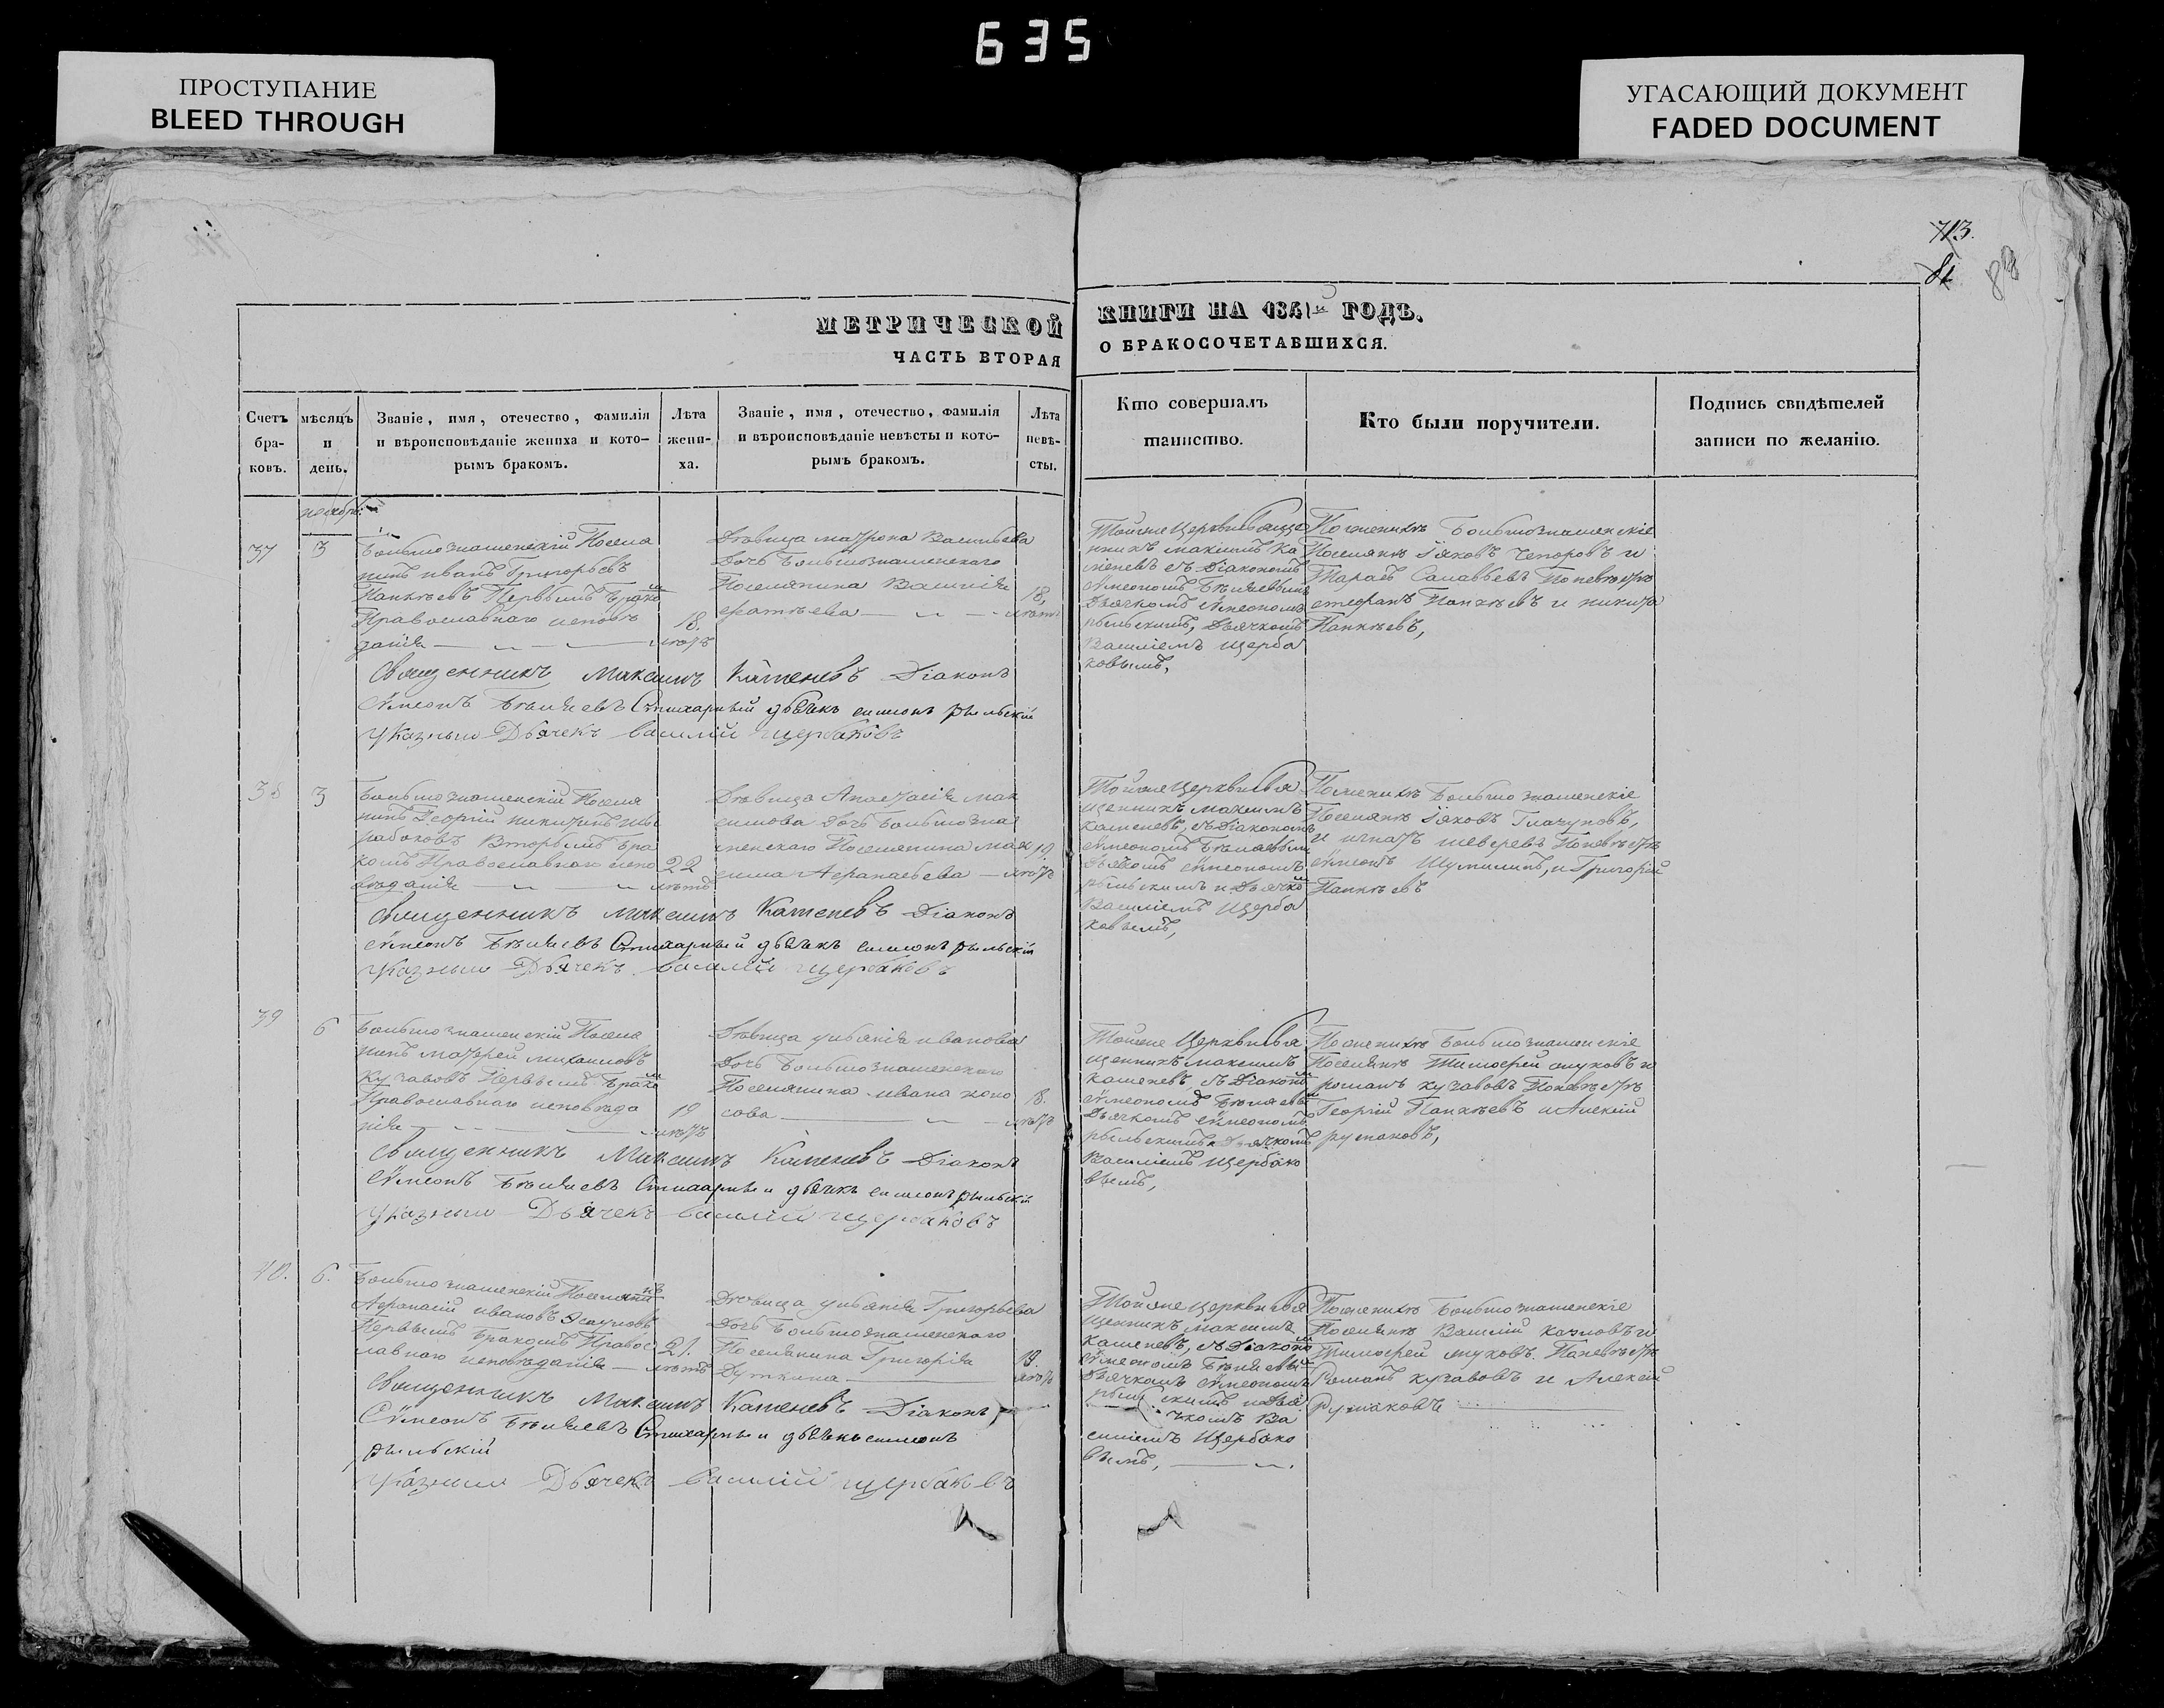 635
ПРОСТУПАНИЕ
BLEED THROUGH
УГАСАЮЩИЙ ДОКУМЕНТ
FADED DOCUMENT
713.
МЕТРИЧЕСКОЙ
КНИГИ НА 1841й ГОДЪ.
ЧАСТЬ ВТОРАЯ
О БРАКОСОЧЕТАВШИХСЯ.
Счетъ
бра-
ковъ.
мѣсяцъ
и
день.
Званіе, имя, отечество, фамилія
и вѣроисповѣданіе жениха и кото-
рымъ бракомъ.
Лѣта
жени-
ха.
Званіе, имя, отечество, фамилія
и вѣроисповѣданіе невѣсты и кото-
рымъ бракомъ.
Лѣта
невѣ-
сты.
Кто совершалъ
таинство.
Кто были поручители.
Подпись свидѣтелей
записи по желанію.
ноябрь
37
3
Большознаменскій Поселя
нинъ иванъ Григорьевъ
Панкѣевъ Первымъ Брако
Православнаго исповѣ
данія
18.
лѣтъ
Дѣвица матрона Васильева
Дочь Большознаменскаго
Поселянина Василія
18,
лѣтъ
Тойже Церкви Свяще
нникъ максимъ Ка
меневъ съ Діакономъ
Сѵмеономъ Бѣляевымъ
Дьячкомъ Сѵмеономъ
рыльскимъ, Дьячкомъ
Василіемъ Щерба
ковымъ,
Поженихѣ Большознаменскіе
Поселянѣ Іяковъ Чепоровъ и
Тарасъ Поневѣстѣ
стефанъ Панкѣевъ и никита
Панкѣевъ,
Священникъ Максимъ Каменевъ Діаконъ
Сѵмеонъ Бѣляевъ Стихарный дьячекъ симеонъ рыльскій
Указный Дьячекъ василій щербаковъ
38
3
Большознаменскій Поселя
нинъ Георгій никитинъ
Вторымъ Бра
комъ Православнаго испо
вѣданія
22
лѣтъ
Дѣвица Анастасія мак
симова Дочь Большозна
менскаго Поселянина мак
сима Афанасьева
19
лѣтъ
Тойже Церкви Свя
щенникъ максимъ
Каменевъ, съ Діакономъ
Сѵмеономъ Бѣляевым
Дьячкомъ Сѵмеономъ
рыльскимъ и Дьячко
Василіемъ Щерба
ковымъ,
Поженихѣ Большознаменскіе
Поселянѣ Іяковъ Глазуновъ,
и игнатъ шеверевъ Поневѣстѣ
Сѵмеонъ Шумилинъ, и Григорій
Панкѣевъ
Священникъ Максимъ Каменевъ Діаконъ
Сѵмеонъ Бѣляевъ Стихарный дьячекъ симеонъ рыльскій
Указный Дьячекъ василій щербаковъ
39
6
Большознаменскій Поселя
нинъ матфей михаиловъ
Кузавовъ Первымъ Брако
Православнаго исповѣда
нія
19
лѣтъ
Дѣвица уліянія иванова
Дочь Большознаменскаго
Поселянина ивана
сова
18.
лѣтъ
Тойже Церкви Свя
щенникъ максимъ
Каменевъ, съ Діаконо
Сѵмеономъ Бѣляевы
Дьячкомъ Сѵмеономъ
рыльскимъ Дьячкомъ
Василіемъ Щербако
вымъ,
Поженихѣ Большознаменскіе
Поселянѣ Тимофей жуковъ и
романъ кузавовъ Поневѣстѣ
Георгій Панкѣевъ и Алексій
русаковъ,
Священникъ Максимъ Каменевъ Діаконъ
Сѵмеонъ Бѣляевъ Стихарный дьячекъ симеонъ рыльскій
Указный Дьячекъ василій щербаковъ
40.
6.
Большознаменскій Поселянинъ
Афанасій ивановъ Эсауловъ
Первымъ Бракомъ Правос
лавнаго исповѣданія
21.
лѣтъ
Дѣвица уліянія Григорьева
Дочь Большознаменскаго
Поселянина Григорія
Дуткина
18.
лѣтъ
Тойже Церкви Свя
щенникъ максимъ
Каменевъ, съ Діаконо
Сѵмеономъ Бѣляевы
Дьячкомъ Сѵмеономъ
рыльскимъ и Дья
чкомъ Ва
силіемъ Щербако
вымъ,
Поженихѣ Большознаменскіе
Поселянѣ Василій козловъ и
Тимофей жуковъ. Поневѣстѣ
Романъ кузавовъ и Алексій
Русаковъ
Священникъ Максимъ Каменевъ Діаконъ
Сѵмеонъ Бѣляевъ Стихарный дьячекъ симеонъ
рыльскій
Указный Дьячекъ василій щербаковъ